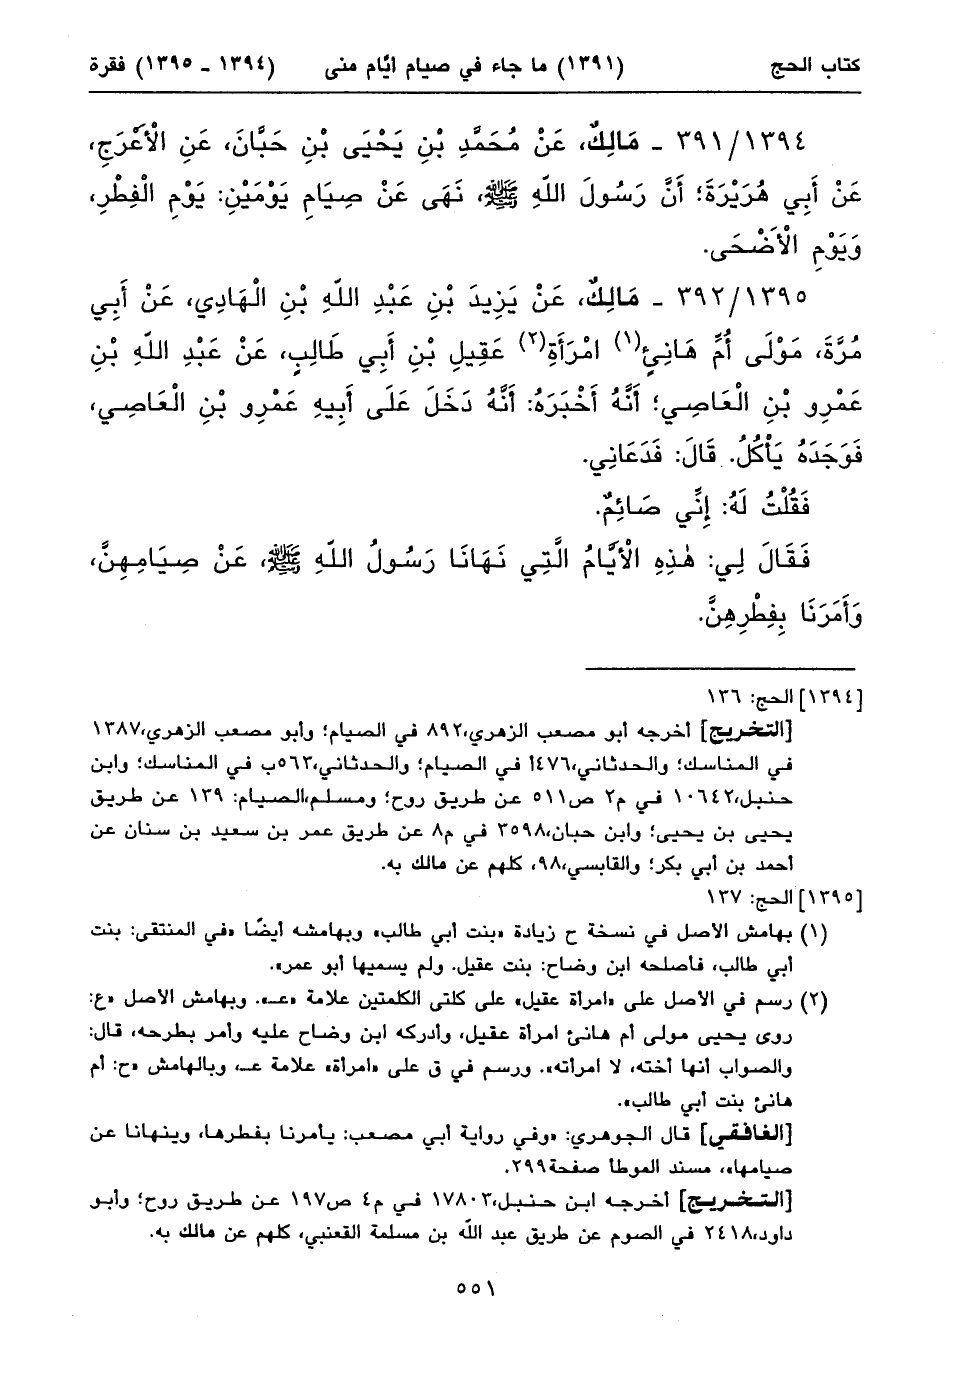 كتاب الحج (١٣٩١) ما جاء في صيام أيّام منى (١٣٩٤ - ١٣٩٥) فقرة
٣٩١/١٣٩٤ - مَالِكٌ، عَنْ مُحَمَّدِ بْنِ يَحْيَى بْنِ حَبَّانَ، عَنِ الْأَعْرَجِ،
عَنْ أَبِي هُرَيْرَةَ؛ أَنَّ رَسُولَ اللّهِ ﷺ، نَهَى عَنْ صِيَامِ يَوْمَيْنِ: يَوْمِ الْفِطْرِ،
وَيَوْمِ الْأَضْحَى.
٣٩٢/١٣٩٥ - مَالِكٌ، عَنْ يَزِيدَ بْنِ عَبْدِ اللّهِ بْنِ الْهَادِي، عَنْ أَبِي
مُرَّةَ، مَوْلَى أُمِّ هَانِئٍ(١) امْرَأَةِ(٢) عَقِيلِ بْنِ أَبِي طَالِبٍ، عَنْ عَبْدِ اللّهِ بْنِ
عَمْرِو بْنِ الْعَاصِي؛ أَنَّهُ أَخْبَرَهُ: أَنَّهُ دَخَلَ عَلَى أَبِيهِ عَمْرِو بْنِ الْعَاصِي،
فَوَجَدَهُ يَأْكُلُ. قَالَ: فَدَعَانِي.
فَقُلْتُ لَهُ: إِنِّي صَائِمٌ.
فَقَالَ لِي: هٰذِهِ الْأَيَّامُ الَّتِي نَهَانَا رَسُولُ اللّهِ ﷺ، عَنْ صِيَامِهِنَّ،
وَأَمَرَنَا بِفِطْرِهِنَّ.
[١٣٩٤] الحج: ١٣٦
[التخريج] أخرجه أبو مصعب الزهري،٨٩٢ في الصيام؛ وأبو مصعب الزهري،١٣٨٧
في المناسك؛ والحدثاني،٤٧٦أ في الصيام؛ والحدثاني،٥٦٣ب في المناسك؛ وابن
حنبل،١٠٦٤٢ في م٢ ص٥١١ عن طريق روح؛ ومسلم،الصيام: ١٣٩ عن طريق
يحيى بن يحيى؛ وابن حبان،٣٥٩٨ في م٨ عن طريق عمر بن سعيد بن سنان عن
أحمد بن أبي بكر؛ والقابسي،٩٨، كلهم عن مالك به.
[١٣٩٥] الحج: ١٣٧
(١) بهامش الأصل في نسخة ح زيادة «بنت أبي طالب» وبهامشه أيضًا «في المنتقى: بنت
أبي طالب، فأصلحه ابن وضاح: بنت عقيل. ولم يسميها أبو عمر».
(٢) رسم في الأصل على «امرأة عقيل» على كلتى الكلمتين علامة «عـ». وبهامش الأصل «ع:
روى يحيى مولى أم هانئ امرأة عقيل، وأدركه ابن وضاح عليه وأمر بطرحه، قال:
والصواب أنها أخته، لا امرأته». ورسم في ق على «امرأة» علامة عـ، وبالهامش «ح: أم
هانئ بنت أبي طالب».
[الغافقي] قال الجوهري: «وفي رواية أبي مصعب: يأمرنا بفطرها، وينهانا عن
صيامها»، مسند الموطأ صفحة٢٩٩.
[التخريج] أخرجه ابن حنبل،١٧٨٠٣ في م٤ ص١٩٧ عن طريق روح؛ وأبو
داود،٢٤١٨ في الصوم عن طريق عبد اللّه بن مسلمة القعنبي، كلهم عن مالك به.
٥٥١